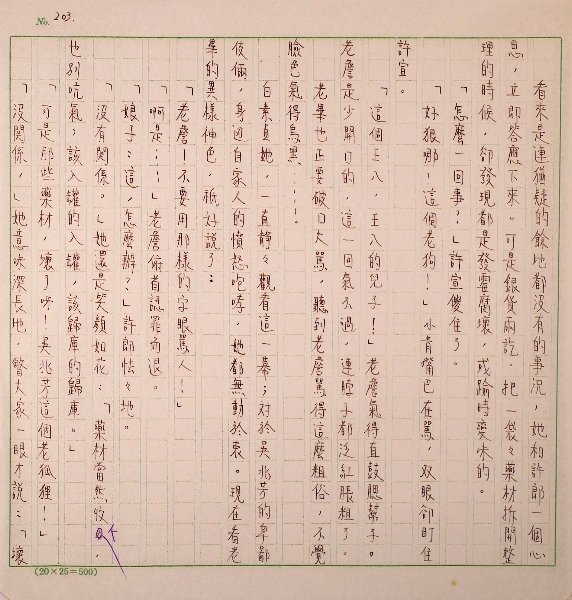 No. 203.
看來是連猶疑的餘地都沒有的事況，她和許郎一個心
思，立即答應下來。可是銀貨兩訖，把一袋々藥材拆開整
理的時候，卻發現都是發霉腐壞，或踰時變味的。
「怎麼一回事？」許宣傻住了。
「好狠哪！這個老狗！」小青嘴巴在罵，双眼卻盯住
許宣。
「這個王八，王八的兒子！」老詹氣得直鼓腮幫子。
老詹是少開口的，這一回氣不過，連脖子都泛紅脹粗了。
老畢也正要破口大罵，聽到老詹罵得這麼粗俗，不覺
臉色氣得烏黑……。
白素真她，一直靜々觀看這一幕；對於吳兆芳的卑鄙
伎倆，身邊自家人的憤怒咆哮，她都無動於衷。現在看老
畢的異樣神色，祇好說了：
「老詹！不要用那樣的字眼罵人！」
「啊是……」老詹俯首認罪而退。
「娘子：這，怎麼辦？」許郎怯々地。
「沒有關係。」她還是笑顏如花：「藥材當然收下，
也別吭氣；該入罐的入罐，該歸庫的歸庫。」
「可是那些藥材，壞了呀！吳兆芳這個老狐狸！」
「沒關係，」她意味深長地，瞥大家一眼才說：「壞
(20×25=500)